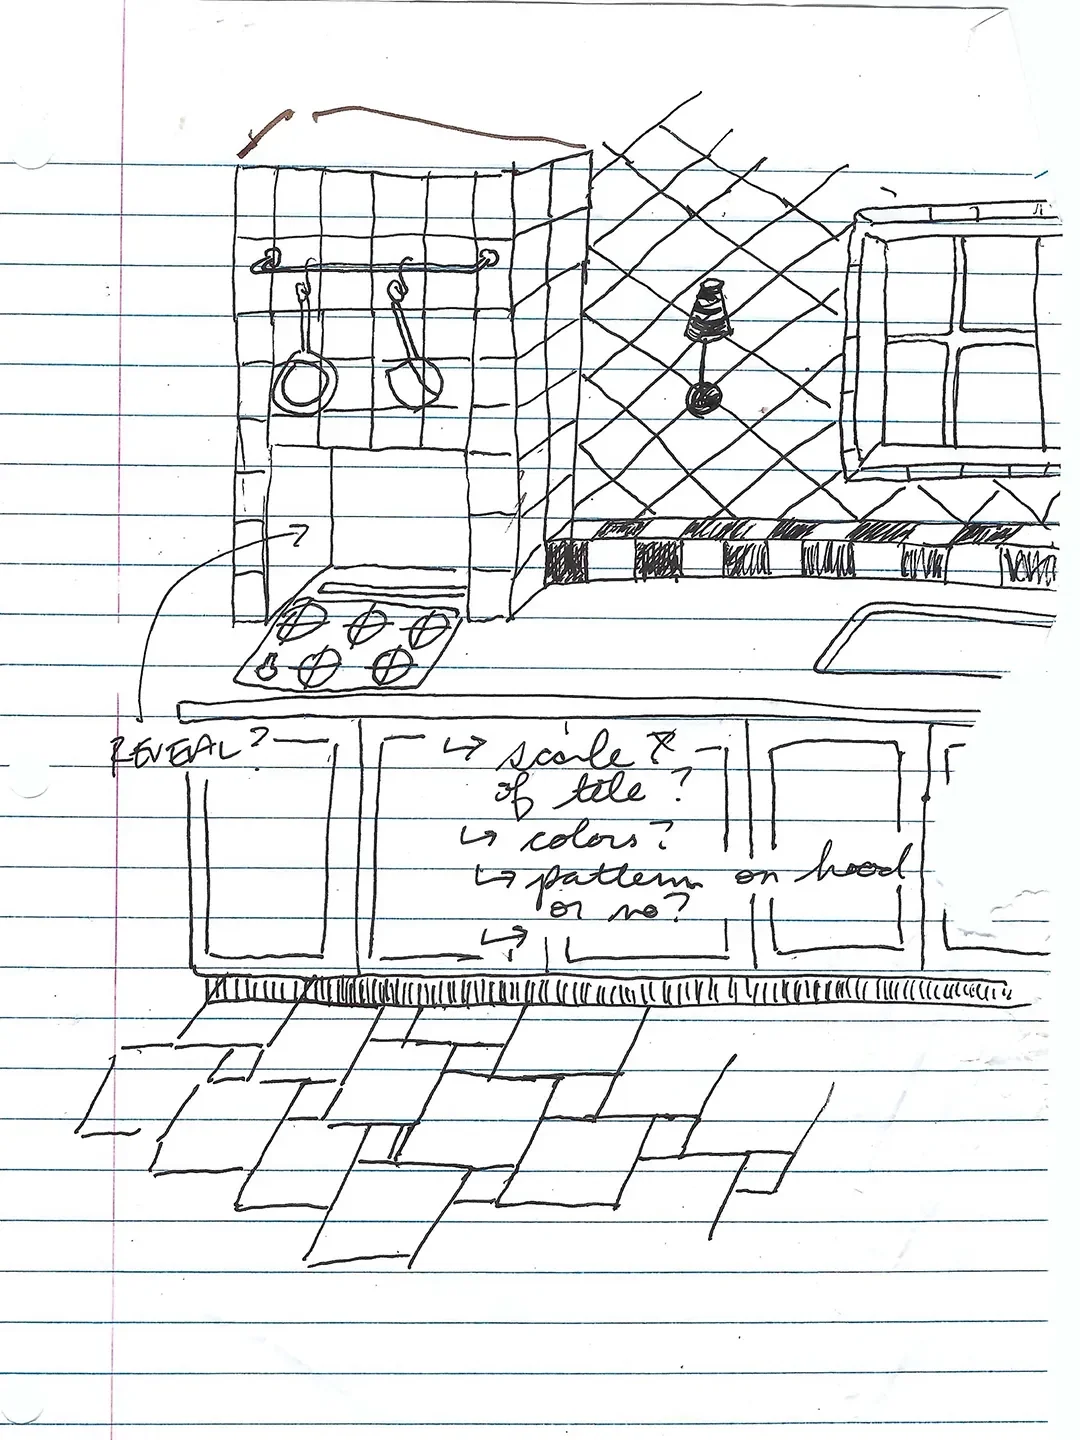 REVEAL?
↳ scale
of tile?
↳ colors?
↳ pattern on hood
or no?
↳